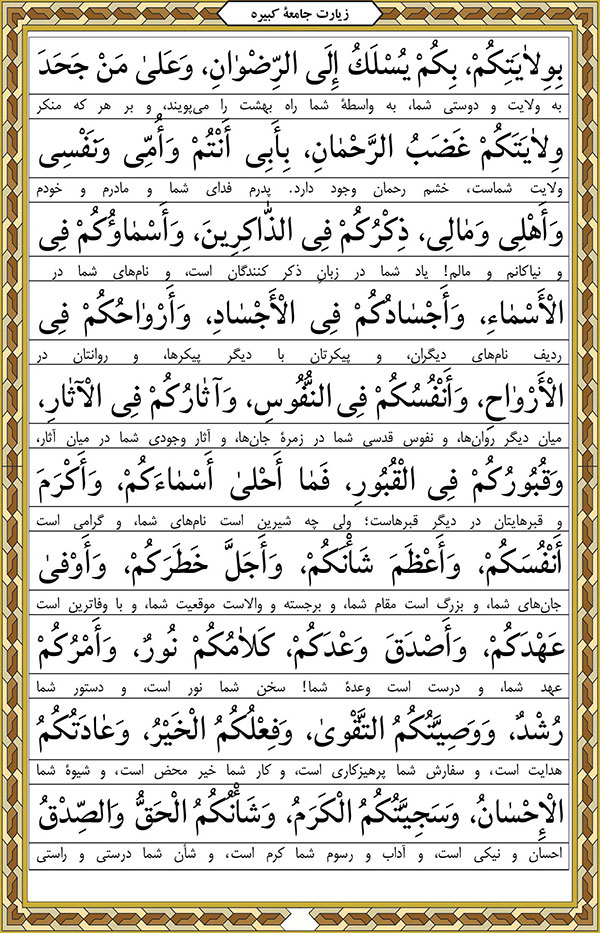 زیارت جامعهٔ کبیره
بِوِلاٰیَتِكُمْ، بِكُمْ یُسْلَكُ إِلَی الرِّضْوٰانِ، وَعَلیٰ مَنْ جَحَدَ
به ولایت و دوستی شما، به واسطهٔ شما راه بهشت را می‌پویند، و بر هر که منکر
وِلاٰیَتَكُمْ غَضَبُ الرَّحْمٰانِ، بِأَبِی أَنْتُمْ وَأُمِّی وَنَفْسِی
ولایت شماست، خشم رحمان وجود دارد. پدرم فدای شما و مادرم و خودم
وَأَهْلِی وَمٰالِی، ذِكْرُكُمْ فِی الذّٰاكِرِینَ، وَأَسْمٰاؤُكُمْ فِی
و نیاکانم و مالم! یاد شما در زبانِ ذکر کنندگان است، و نام‌های شما در
الْأَسْمٰاءِ، وَأَجْسٰادُكُمْ فِی الْأَجْسٰادِ، وَأَرْوٰاحُكُمْ فِی
ردیف نام‌های دیگران، و پیکرتان با دیگر پیکرها، و روانتان در
الْأَرْوٰاحِ، وَأَنْفُسُكُمْ فِی النُّفُوسِ، وَآثٰارُكُمْ فِی الْآثٰارِ،
میان دیگر روان‌ها، و نفوس قدسی شما در زمرهٔ جان‌ها، و آثار وجودی شما در میان آثار،
وَقُبُورُكُمْ فِی الْقُبُورِ، فَمٰا أَحْلیٰ أَسْمٰاءَكُمْ، وَأَكْرَمَ
و قبرهایتان در دیگر قبرهاست؛ ولی چه شیرین است نام‌های شما، و گرامی است
أَنْفُسَكُمْ، وَأَعْظَمَ شَأْنَكُمْ، وَأَجَلَّ خَطَرَكُمْ، وَأَوْفیٰ
جان‌های شما، و بزرگ است مقام شما، و برجسته و والاست موقعیت شما، و با وفاترین است
عَهْدَكُمْ، وَأَصْدَقَ وَعْدَكُمْ، كَلاٰمُكُمْ نُورٌ، وَأَمْرُكُمْ
عهد شما، و درست است وعدهٔ شما! سخن شما نور است، و دستور شما
رُشْدٌ، وَوَصِیَّتُكُمُ التَّقْویٰ، وَفِعْلُكُمُ الْخَیْرُ، وَعٰادَتُكُمُ
هدایت است، و سفارش شما پرهیزکاری است، و کار شما خیر محض است، و شیوهٔ شما
الْإِحْسٰانُ، وَسَجِیَّتُكُمُ الْكَرَمُ، وَشَأْنُكُمُ الْحَقُّ وَالصِّدْقُ
احسان و نیکی است، و آداب و رسوم شما کرم است، و شأن شما درستی و راستی